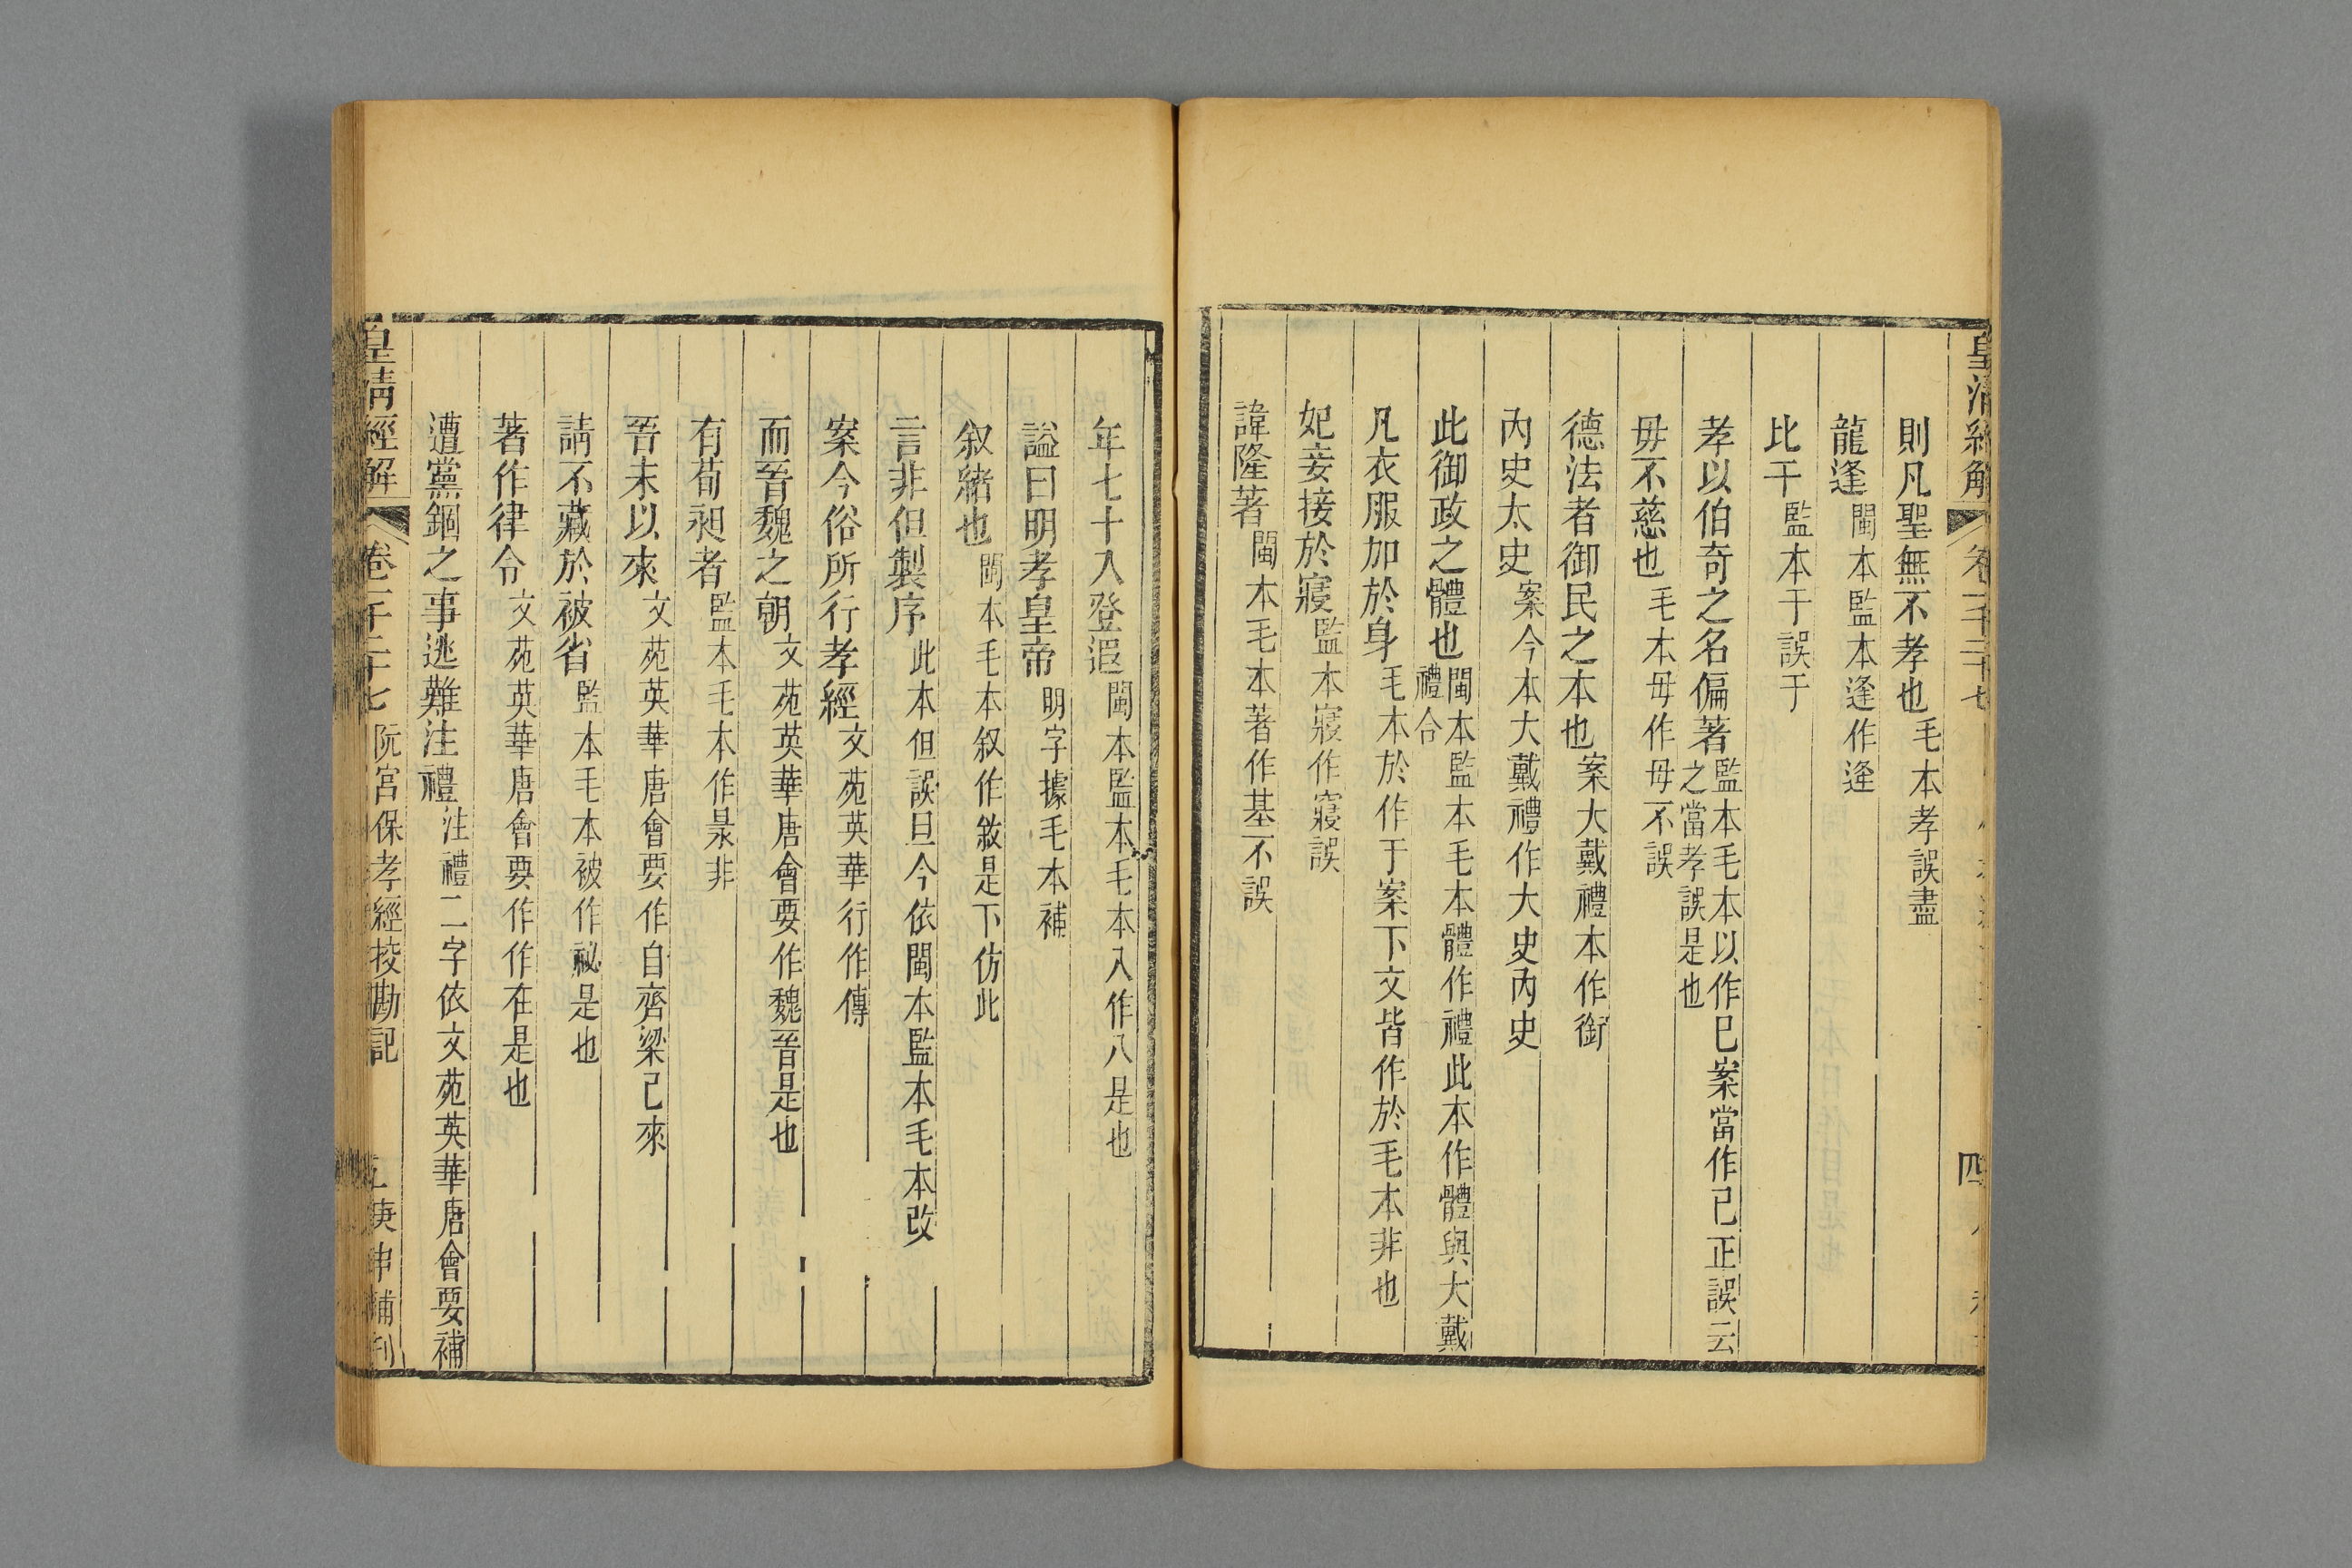 皇清經解 卷一千二十七 四
則凡聖無不孝也毛本孝誤盡
龍逢閩本監本逢作逄
比干監本干誤于
孝以伯奇之名偏著監本毛本以作巳案當作己正誤云之當孝誤是也
毋不慈也毛本毋作母不誤
德法者御民之本也案大戴禮本作銜
內史太史案今本大戴禮作大史內史
此御政之體也閩本監本毛本體作禮此本作體與大戴禮合
凡衣服加於身毛本於作于案下文皆作於毛本非也
妃妾接於寢監本寢作寑誤
諱隆著閩本毛本著作基不誤
年七十入登遐閩本監本毛本入作八是也
謚曰明孝皇帝明字據毛本補
叙緒也閩本毛本叙作敘是下仿此
言非但製序此本但誤旦今依閩本監本毛本改
案今俗所行孝經文苑英華行作傳
而晉魏之朝文苑英華唐會要作魏晉是也
有荀昶者監本毛本作㫤非
晉未以來文苑英華唐會要作自齊梁已來
請不藏於被省監本毛本被作祕是也
著作律令文苑英華唐會要作作在是也
遭黨錮之事逃難注禮注禮二字依文苑英華唐會要補
皇清經解 卷一千二十七 阮宮保孝經挍勘記 五 庚申補刊